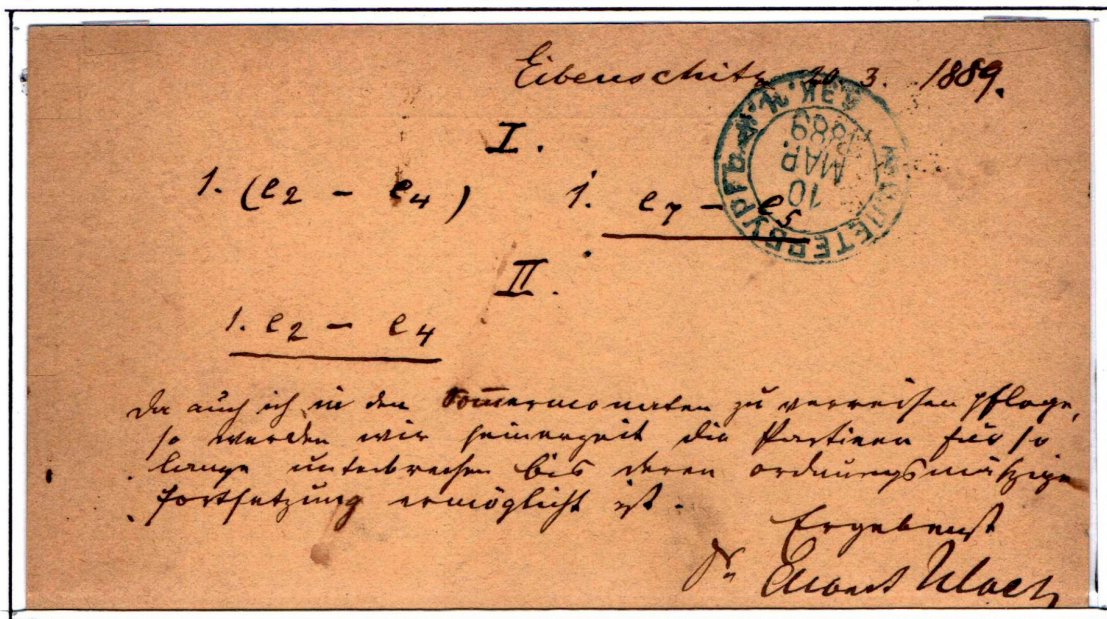 Eibenschitz 20 3. 1889.
С.ПЕТЕРБУРГЪ
10
МАР.
1889
I.
1. (e2 – e4) 1. e7 – e5
II.
1. e2 – e4
Da auch ich in den Som̅ermonaten zu verreisen pflege,
so werden wir seinerzeit die Partieen für so
lange unterbrechen bis deren ordnungsmäßige
Fortsetzung ermöglicht ist.
Ergebenst
Dr